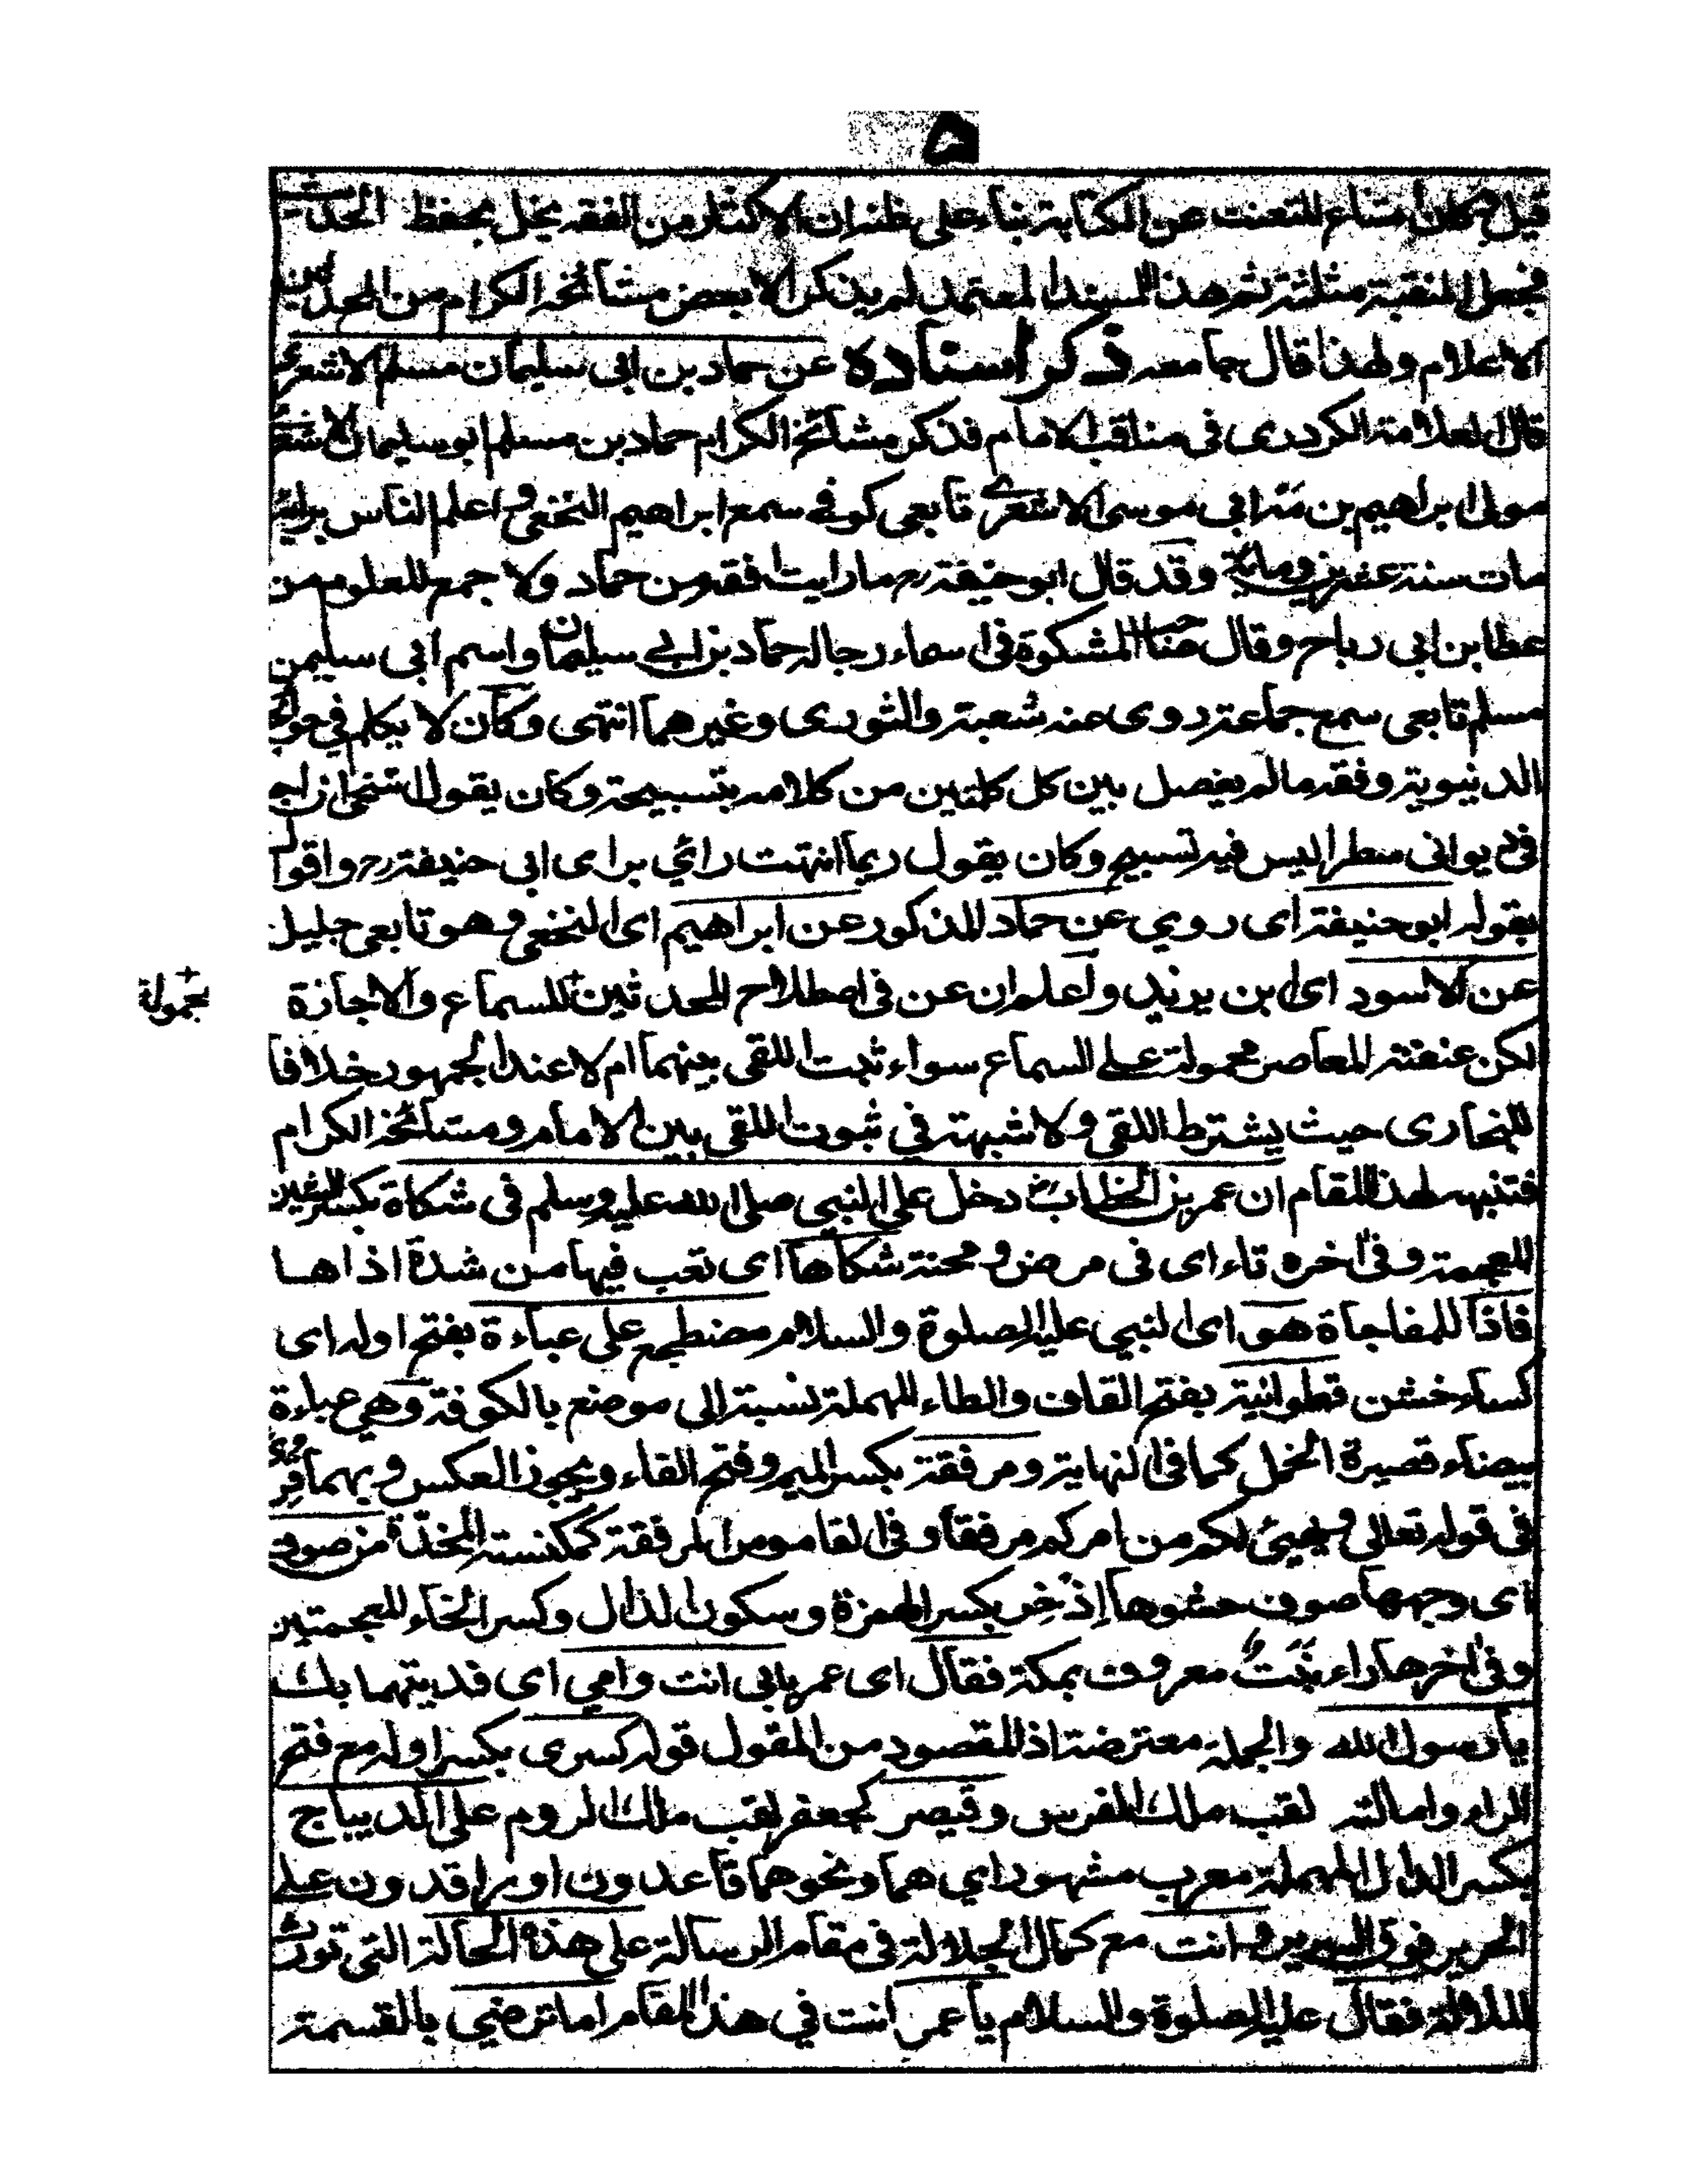 ۵
قيل كان امتناع للتعنت عن الكتابة بناء على ظنه ان الاكثار من الفقه يخل بحفظ الحديث
فجعل المنقبة مثلثة ثم هذا المسند المعتمد لم يذكر الا بعض مشائخه الكرام من المحدثين
الاعلام ولهذا قال جامعه ذكر اسناده عن حماد بن ابى سليمان مسلم الاشعرى
قال العلامة الكردرى فى مناقب الامام فذكر مشائخ الكرام حماد بن مسلم ابو سليمان الاشعرى
مولى ابراهيم بن ابى موسى الاشعرى تابعى كوفى سمع ابراهيم النخعى و اعلم الناس برأيه
مات سنة عشرين ومائة وقد قال ابو حنيفة رح ما رايت افقه من حماد ولا اجمع للعلوم من
عطا بن ابى رباح وقال صاحب المشكوة فى اسماء رجاله حماد بن ابى سليمان واسم ابى سليمن
مسلم تابعى سمع جماعة روى عنه شعبة والثورى وغيرهما انتهى وكان لا يكلم فى حوائجه
الدنيوية وفقه مالم يفصل بين كل كلمتين من كلامه بتسبيحة وكان يقول استحى ان اجد
فى ديوانى سطرا ليس فيه تسبيح وكان يقول ربما انتهت رائي براى ابى حنيفة رح واقول
بقوله ابو حنيفة اى روي عن حماد المذكور عن ابراهيم اى النخعى وهو تابعى جليل
عن الاسود اى ابن يزيد واعلم ان عن فى اصطلاح المحدثين للسماع والاجازة
محمولة
لكن عنعنة المعاصر محمولة على السماع سواء ثبت اللقى بينهما ام لا عند الجمهور خلافا
للبخارى حيث يشترط اللقى ولا شبهة فى ثبوت اللقى بين الامام و مشائخه الكرام
فتنبه لهذا المقام ان عمر بن الخطاب رض دخل على النبى صلى الله عليه وسلم فى شكاة بكسر الشين
المعجمة وفى اخره تاء اى فى مرض و محنة شكاها اى تعب فيها من شدة اذاها
فاذا للمفاجاة هو اى النبى عليه الصلوة والسلام مضطجع على عباءة بفتح اوله اى
كساء خشن قطوانية بفتح القاف والطاء المهملة نسبة الى موضع بالكوفة وهى عباءة
بيضاء قصيرة الخمل كما فى النهاية ومرفقة بكسر الميم وفتح الفاء ويجوز العكس وبهما قرئ
فى قوله تعالى ويهيئ لكم من امركم مرفقا وفى القاموس المرفقة كمكنسة المخدة من صوف
اى وجهها صوف حشوها إذخر بكسر الهمزة وسكون الذال وكسر الخاء المعجمتين
وفى اخرها راء نبت معروف بمكة فقال اى عمر بابى انت وامي اى فديتهما بك
يا رسول الله والجملة معترضة اذ المقصود من المقول قوله كسرى بكسر اوله مع فتح
الراء وامالته لقب ملك الفرس وقيصر كجعفر لقب ملك الروم على الديباج
بكسر الدال المهملة معرب مشهور اي هما ونحوهما قاعدون او راقدون على
الحرير فوق السرير وانت مع كمال الجلالة فى مقام الرسالة على هذه الحالة التى تورث
الملالة فقال عليه الصلوة والسلام يا عمر انت في هذا المقام اما ترضي بالقسمة